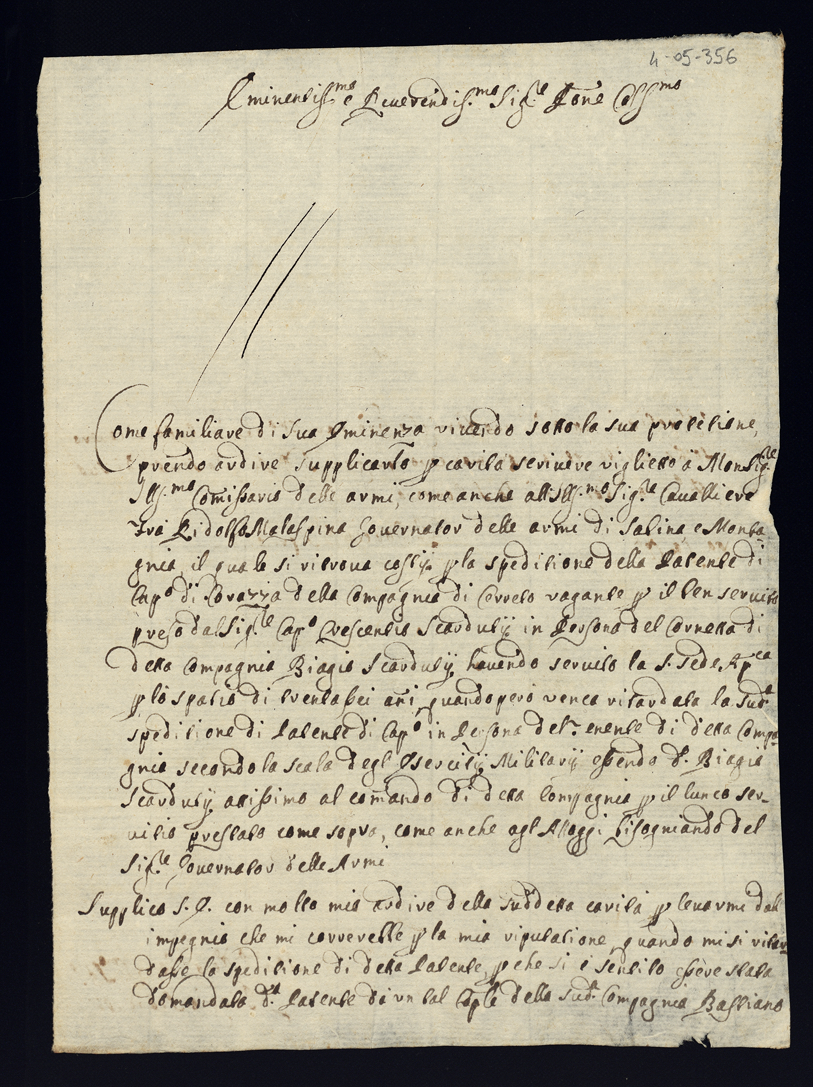 4-05-356
Eminentiss.mo e Reuerendiss.mo Sig.re Prone Coll.mo
Come familiare di Sua Eminenza viuendo sotto la sua protetione,
prendo ardire supplicarlo p carita scriuere viglietto à Monsig.re
Ill.mo Comissario delle armi, come anche all'Ill.mo Sig.re Caualliere
Fra Ridolfo Malaspina Gouernator delle armi di Sabina, e Monta-
gnia, il quale si ritroua costij p la speditione della Patente di
Cap.o di Corazza della Compagnia di Correto vagante p il ben seruito
preso dal Sig.re Cap.o Crescentio Scardutij in Persona del Cornetta di
detta Compagnia Biagio Scardutij, hauendo seruito la S. Sede Ap.ca
p lo spatio di trentasei añi, quando però venca ritardata la sud.a
speditione di Patente di Cap.o in Persona del Tenente di detta Compa-
gnia secondo la scala degl'Esercitij Militarij essendo d.o Biagio
Scardutij attissimo al comãndo di detta Compagnia p il lunco ser-
uitio prestato come sopra, come anche agl'Aloggi bisogniando del
Sig.re Gouernator delle Armi
Supplico S. E. con molto mio ardire della suddetta carità p leuarmi dall
impegnio che mi correrebbe p la mia riputatione, quando mi si ritar-
dasse la speditione di detta Patente, p che si è sentito essere stata
domandata d.a Patente di vn tal Cap.le della sud.a Compagnia Bastiano